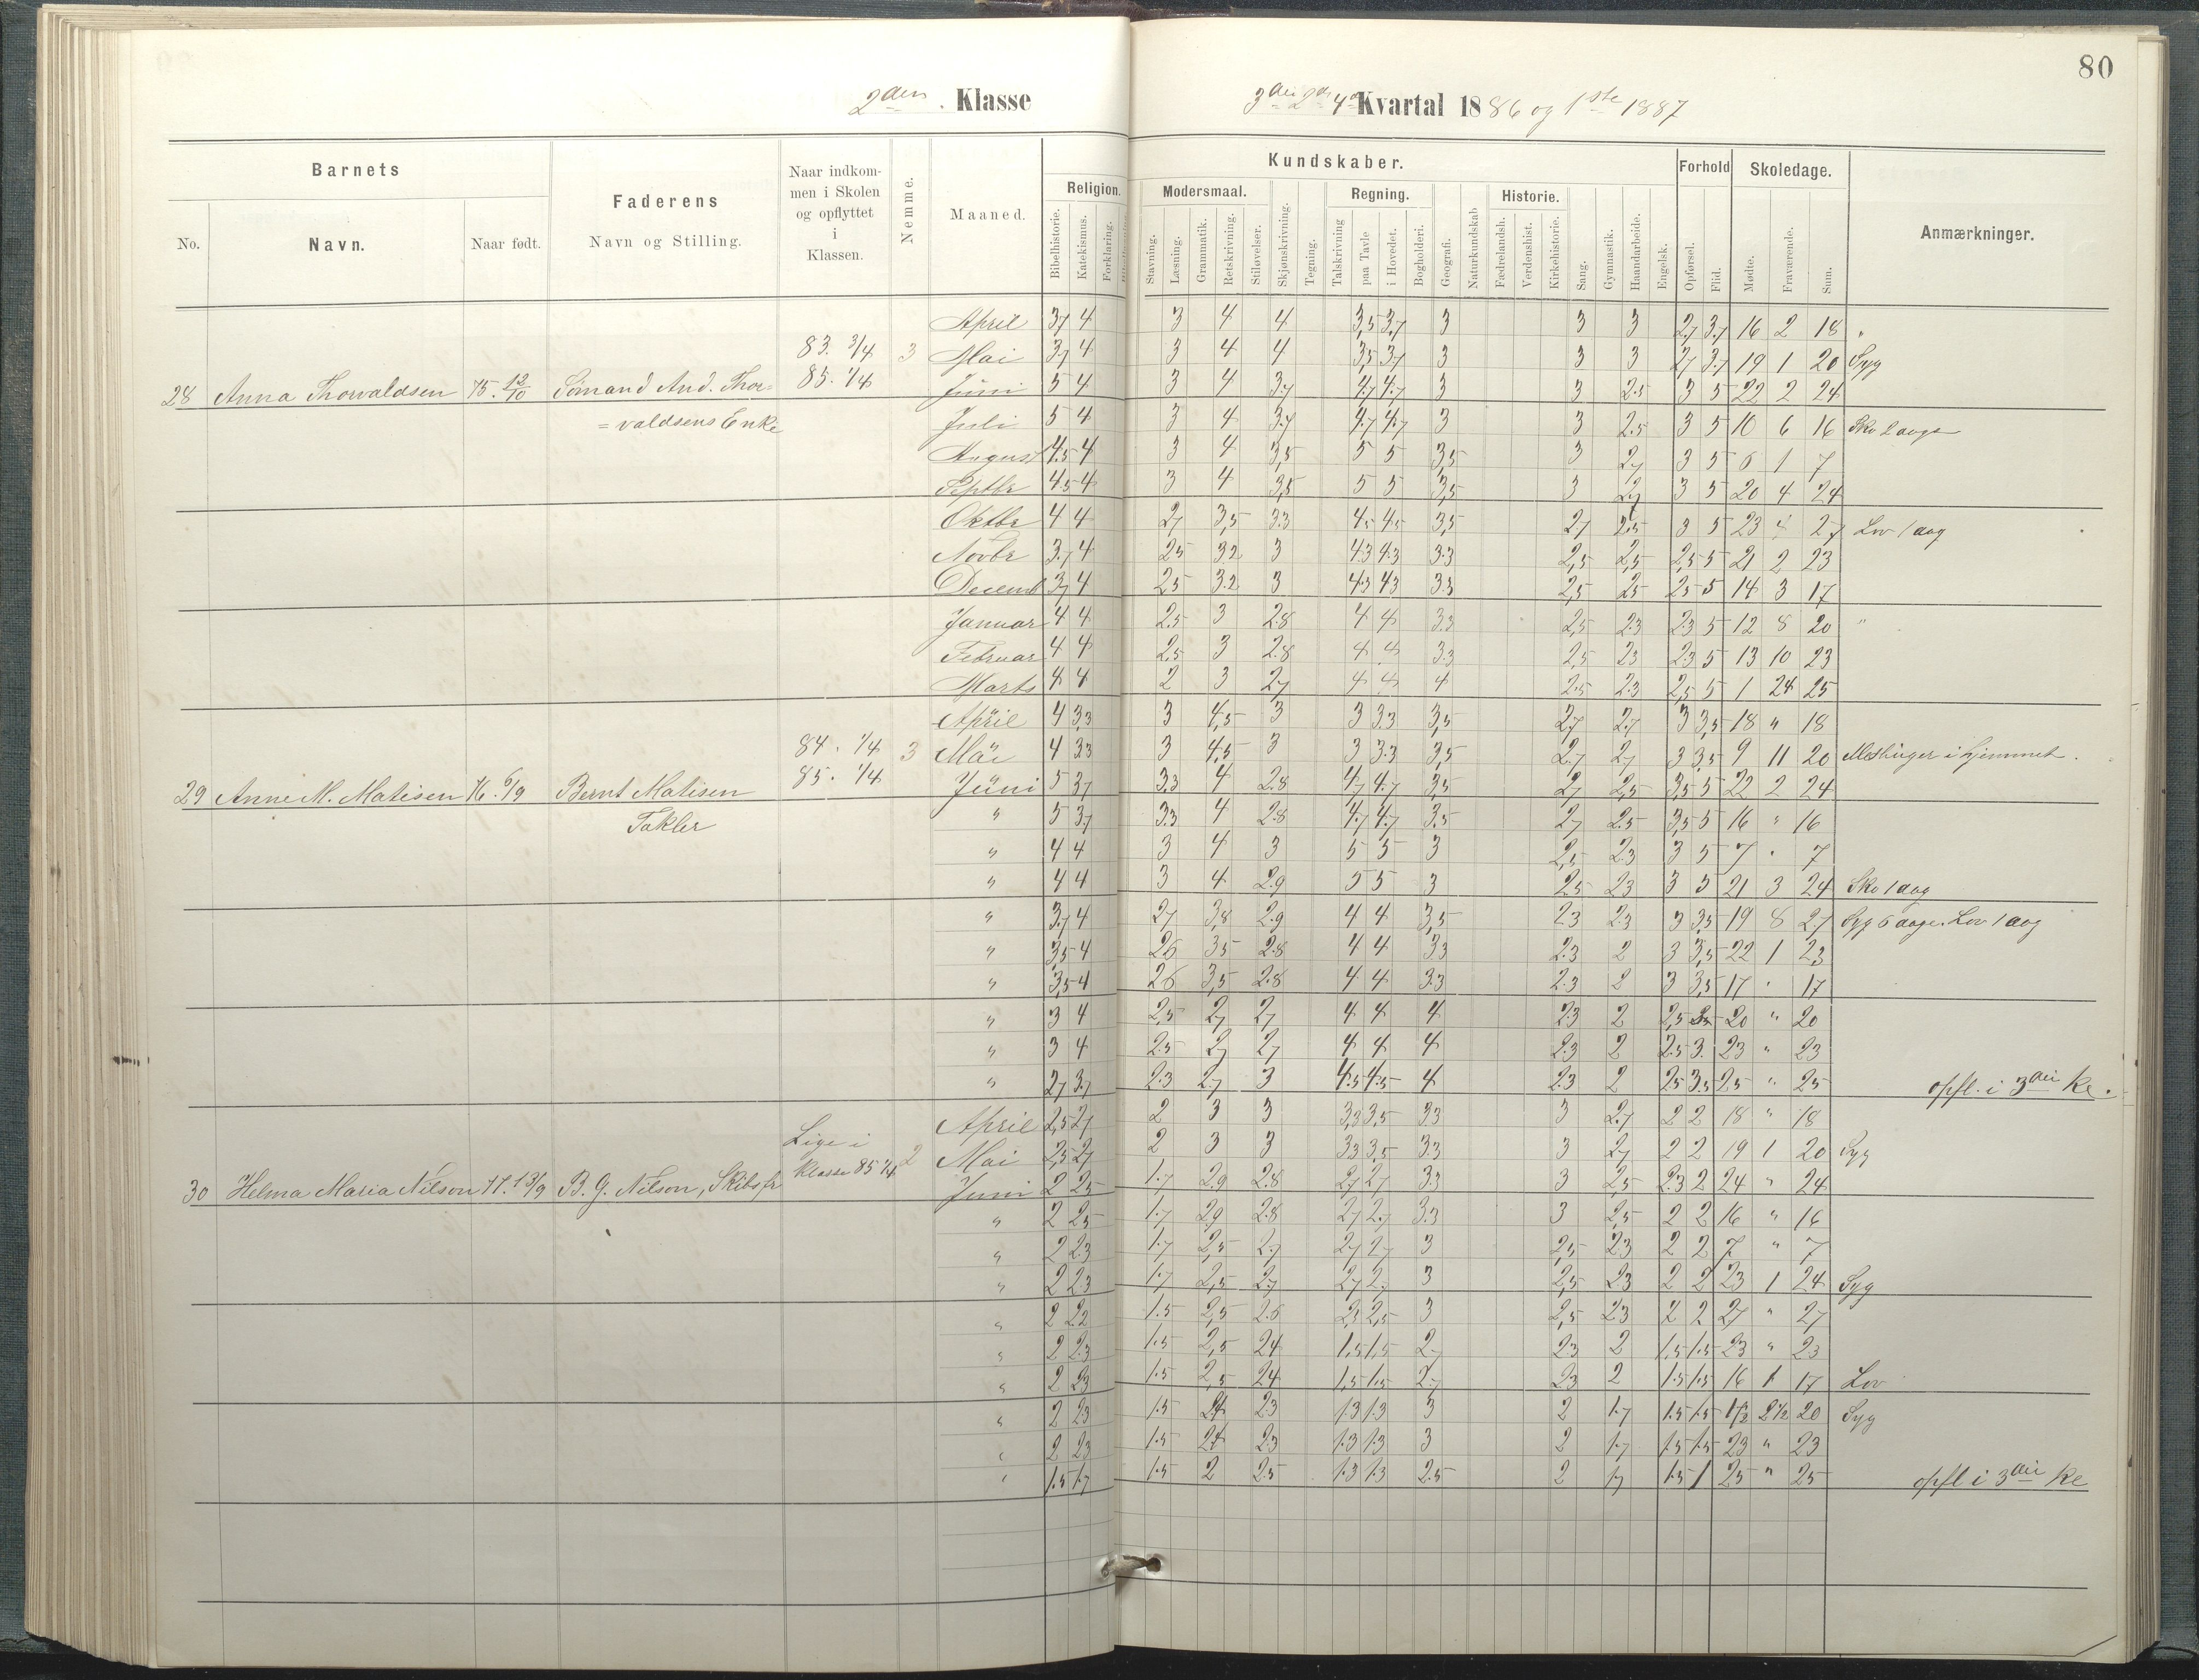 80
2den Klasse
3die 2de 4de Kvartal 1886 og 1ste 1887
Barnets
Faderens
Naar indkommen i Skolen og opflyttet i Klassen.
Nemme.
Maaned.
Kundskaber.
Forhold
Skoledage.
Anmærkninger.
No.
Navn.
Naar født.
Navn og Stilling.
Religion.
Modersmaal.
Regning.
Historie.
Bibelhistorie.
Katekismus.
Forklaring.
Stavning.
Læsning.
Grammatik.
Retskrivning.
Stiløvelser.
Skjønskrivning.
Tegning.
Talskrivning
paa Tavle
i Hovedet.
Bogholderi.
Geografi.
Naturkundskab
Fædrelandsh.
Verdenshist.
Kirkehistorie.
Sang.
Gymnastik.
Haandarbeide.
Engelsk.
Opførsel.
Flid.
Mødte.
Fraværende.
Sum.
April 3,7 4 3 4 4 3,5 3,7 3 3 3 2,7 3,7 16 2 18 "
83. 3/4 3 Mai 3,7 4 3 4 4 3,5 3,7 3 3 3 2,7 3,7 19 1 20 Syg
28 Anna Thorvaldsen 75. 12/10 Sømand And. Thor= 85. 1/4 Juni 5 4 3 4 3,7 4,7 4,7 3 3 2.5 3 5 22 2 24
=valdsens Enke Juli 5 4 3 4 3,7 4,7 4,7 3 3 2.5 3 5 10 6 16 Sko 2 dage
August 4.5 4 3 4 3,5 5 5 3,5 3 2,7 3 5 6 1 7
Septbr 4.5 4 3 4 3,5 5 5 3,5 3 2,7 3 5 20 4 24
Oktbr 4 4 2,7 3,5 3.3 4,5 4,5 3,5 2,7 2,5 3 5 23 4 27 Lov 1 dag
Novbr 3,7 4 2,5 3.2 3 4.3 4.3 3.3 2,5 2,5 2,5 5 21 2 23
Decemb 3,7 4 2,5 3.2 3 4.3 4.3 3.3 2,5 2,5 2,5 5 14 3 17
Januar 4 4 2.5 3 2.8 4 4 3.3 2,5 2.3 2.3 5 12 8 20 "
Februar 4 4 2,5 3 2.8 4 4 3.3 2,5 2.3 2.3 5 13 10 23
Marts 4 4 2 3 2,7 4 4 4 2.5 2.3 2,5 5 1 24 25
April 4 3,3 3 4,5 3 3 3.3 3,5 2,7 2,7 3 3,5 18 " 18
84. 1/4 3 Mai 4 3.3 3 4,5 3 3 3.3 3,5 2,7 2,7 3 3,5 9 11 20 Meslinger i hjemmet.
29 Anne M. Matisen 76. 6/9 Bernt Matisen 85. 1/4 Juni 5 3,7 3.3 4 2.8 4,7 4,7 3,5 2,7 2,5 3,5 5 22 2 24
Takler " 5 3,7 3.3 4 2.8 4,7 4,7 3.5 2,7 2.5 3,5 5 16 " 16
" 4 4 3 4 3 5 5 3 2,5 2.3 3 5 7 " 7
" 4 4 3 4 2.9 5 5 3 2.5 2.3 3 5 21 3 24 Sko 1 dag
" 3,7 4 2,7 3,8 2.9 4 4 3,5 2.3 2.3 3 3,5 19 8 27 Syg 6 dage. Lov 1 dag
" 3,5 4 2.6 3.5 2.8 4 4 3.3 2.3 2 3 3,5 22 1 23
" 3,5 4 2.6 3,5 2.8 4 4 3.3 2.3 2 3 3,5 17 " 17
" 3 4 2,5 2,7 2,7 4 4 4 2.3 2 2,5 20 " 20
" 3 4 2.5 2,7 2,7 4 4 4 2.3 2 2.5 3. 23 " 23
" 2,7 3,7 2.3 2,7 3 4.5 4.5 4 2.3 2 2.5 3,5 25 " 25 opfl. i 3die Kl.
April 2,5 2,7 2 3 3 3,3 3,5 3.3 3 2,7 2 2 18 " 18
Lige i 2 Mai 2,5 2,7 2 3 3 3.3 3.5 3.3 3 2,7 2 2 19 1 20 Syg
30 Helma Maria Nilson 77. 13/9 B. G. Nilson, Skibsfr Klasse 85 1/4 Juni 2 2.5 1.7 2.9 2.8 2,7 2,7 3.3 3 2,5 2.3 2 24 " 24
" 2 2.5 1.7 2.9 2.8 2,7 2,7 3.3 3 2,5 2 2 16 " 16
" 2 2.3 1.7 2,5 2,7 2,7 2,7 3 2,5 2.3 2 2 7 " 7
" 2 2.3 1.7 2,5 2,7 2,7 2,7 3 2,5 2.3 2 2 23 1 24 Syg
" 2 2.2 1.5 2,5 2.6 2,3 2,5 3 2,5 2.3 2 2 27 " 27
" 2 2.3 1.5 2,5 2.4 1,5 1,5 2,7 2.3 2 1,5 1.5 23 " 23
" 2 2.3 1.5 2,5 2.4 1,5 1.5 2,7 2.3 2 1.5 1.5 16 1 17 Lov
" 2 2.3 1.5 2.4 2.3 1.3 1.3 3 2 1.7 1.5 1.5 2 1/2 20 Syg
" 2 2.3 1.5 2.4 2.3 1.3 1.3 3 2 1.7 1.5 1.5 23 " 23
" 1.5 1.7 1.5 2 2.5 1.3 1.3 2.5 2 1.7 1.5 1 25 " 25 opfl i 3die Kl